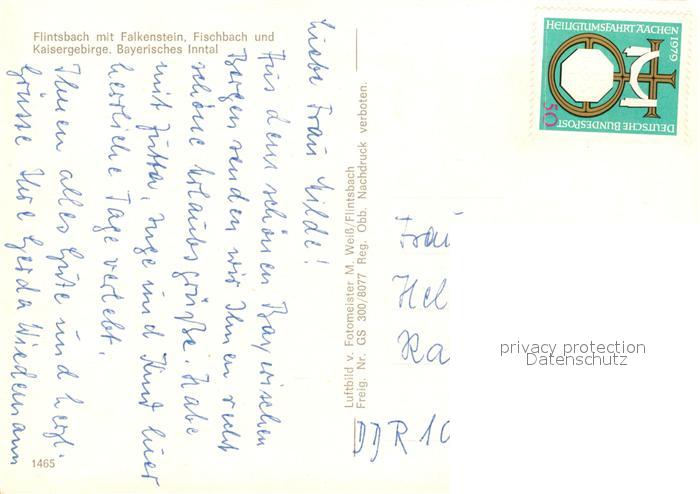 Flintsbach mit Falkenstein, Fischbach und
Kaisergebirge. Bayerisches Inntal
Liebe Frau Milde!
Aus dem schönen Bayerischen
Bergen senden wir Ihnen recht
schöne Urlaubsgrüße. Habe
mit Jutta, Inge und Knut hier
herrliche Tage verlebt.
Ihnen alles Gute und herzl.
Grüsse Ihre Gerda Wiedemann
1465
Luftbild v. Fotomeister M. Weiß/Flintsbach
Freig. Nr. GS 300/8077 Reg. Obb. Nachdruck verboten.
HEILIGTUMSFAHRT AACHEN 1979
50
DEUTSCHE BUNDESPOST
Frau
Hel
Ka
DDR 10
privacy protection
Datenschutz